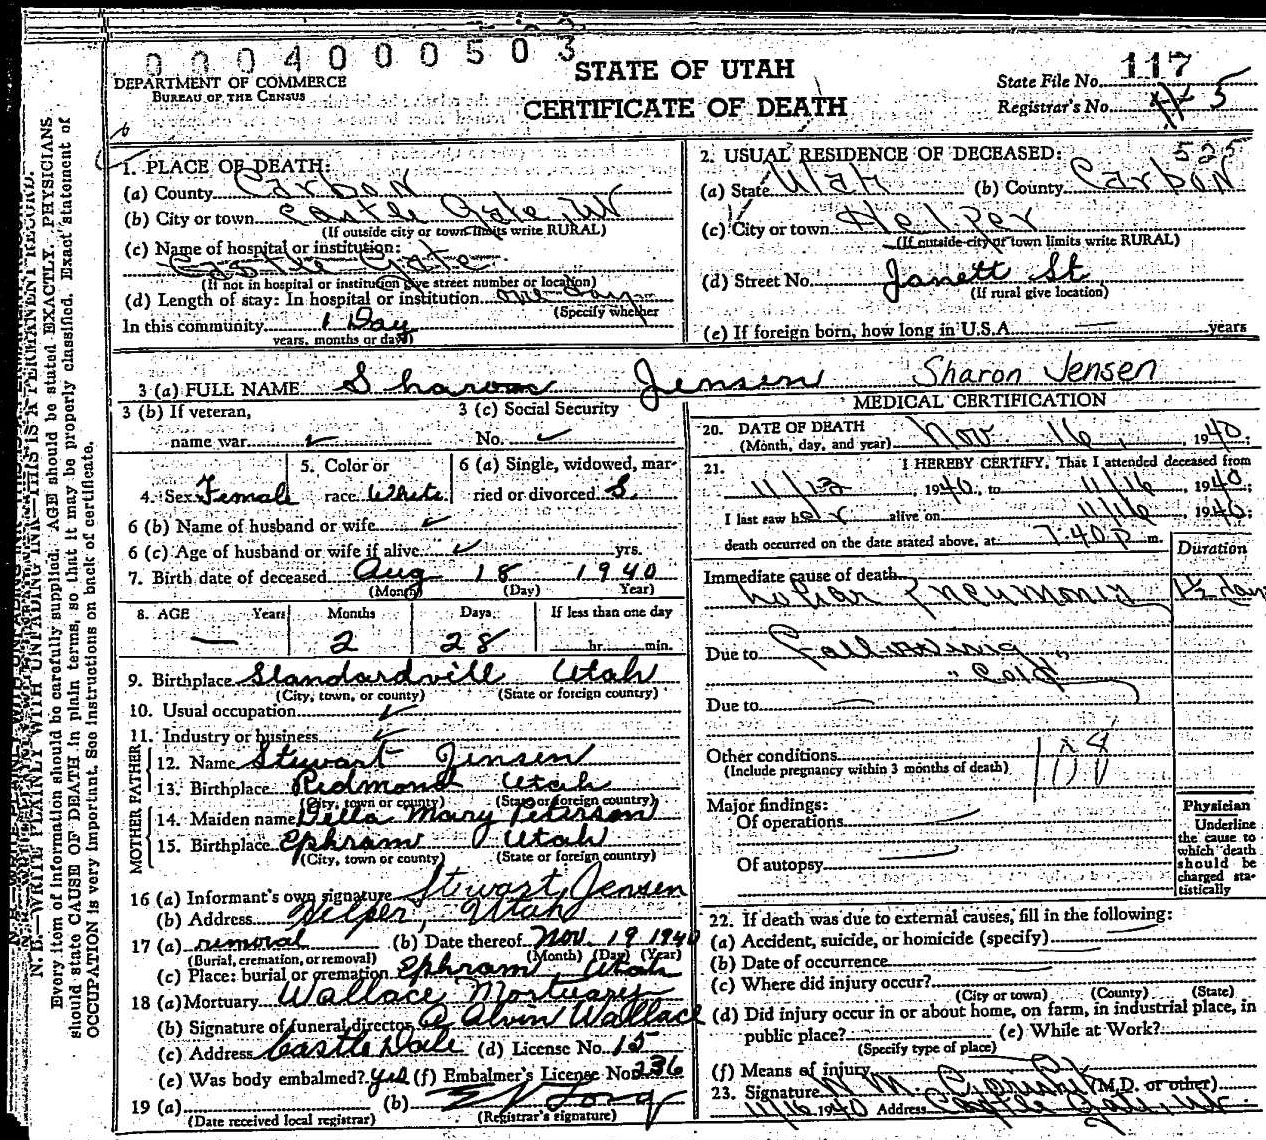 0004000503
DEPARTMENT OF COMMERCE
BUREAU OF THE CENSUS
STATE OF UTAH
CERTIFICATE OF DEATH
State File No. 117
Registrar's No. 5
1. PLACE OF DEATH:
(a) County Carbon
(b) City or town Castle Gate, Ut
(If outside city or town limits write RURAL)
(c) Name of hospital or institution:
Castle Gate
(If not in hospital or institution give street number or location)
(d) Length of stay: In hospital or institution one day
(Specify whether
In this community 1 Day
years, months or days)
2. USUAL RESIDENCE OF DECEASED:
(a) State Utah (b) County Carbon
(c) City or town Helper
(If outside city or town limits write RURAL)
(d) Street No. Janett St
(If rural give location)
(e) If foreign born, how long in U.S.A. — years
3 (a) FULL NAME Sharon Jensen Sharon Jensen
3 (b) If veteran,
name war
3 (c) Social Security
No.
4. Sex Female
5. Color or
race White
6 (a) Single, widowed, mar-
ried or divorced S.
6 (b) Name of husband or wife
6 (c) Age of husband or wife if alive yrs.
7. Birth date of deceased Aug 18 1940
(Month) (Day) Year)
8. AGE Years Months Days If less than one day
— 2 28 hr. min.
9. Birthplace Standardvill Utah
(City, town, or county) (State or foreign country)
10. Usual occupation
11. Industry or business
FATHER
12. Name Stewart Jensen
13. Birthplace Redmond Utah
(City, town or county) (State or foreign country)
MOTHER
14. Maiden name Della Mary Peterson
15. Birthplace Ephram Utah
(City, town or county) (State or foreign country)
16 (a) Informant's own signature Stewart Jensen
(b) Address Helper, Utah
17 (a) removal (b) Date thereof Nov. 19 1940
(Burial, cremation, or removal) (Month) (Day) (Year)
(c) Place: burial or cremation Ephram, Utah
18 (a) Mortuary Wallace Mortuary
(b) Signature of funeral director A Alvin Wallace
(c) Address Castle Dale (d) License No. 15
(e) Was body embalmed? yes (f) Embalmer's License No. 236
19 (a) (b)
(Date received local registrar) (Registrar's signature)
MEDICAL CERTIFICATION
20. DATE OF DEATH
(Month, day, and year) Nov 16, 1940;
21. I HEREBY CERTIFY, That I attended deceased from
1940, to 11/16, 1940;
I last saw her alive on 11/16, 1940;
death occurred on the date stated above, at 7:40 p m.
Duration
Immediate cause of death
Lobar Pneumonia 1½ days
Due to Following
"Cold"
Due to —
Other conditions
(Include pregnancy within 3 months of death)
108
Major findings:
Of operations —
Of autopsy —
Physician
Underline
the cause to
which death
should be
charged sta-
tistically
22. If death was due to external causes, fill in the following:
(a) Accident, suicide, or homicide (specify) —
(b) Date of occurrence —
(c) Where did injury occur?
(City or town) (County) (State)
(d) Did injury occur in or about home, on farm, in industrial place, in
public place? (e) While at Work?
(Specify type of place)
(f) Means of injury
23. Signature (M.D. or other)
11/16 1940 Address Castle Gate, Ut.
N. B.—WRITE PLAINLY WITH UNFADING INK—THIS IS A PERMANENT RECORD.
Every item of information should be carefully supplied. AGE should be stated EXACTLY. PHYSICIANS
should state CAUSE OF DEATH in plain terms, so that it may be properly classified. Exact statement of
OCCUPATION is very important. See instructions on back of certificate.